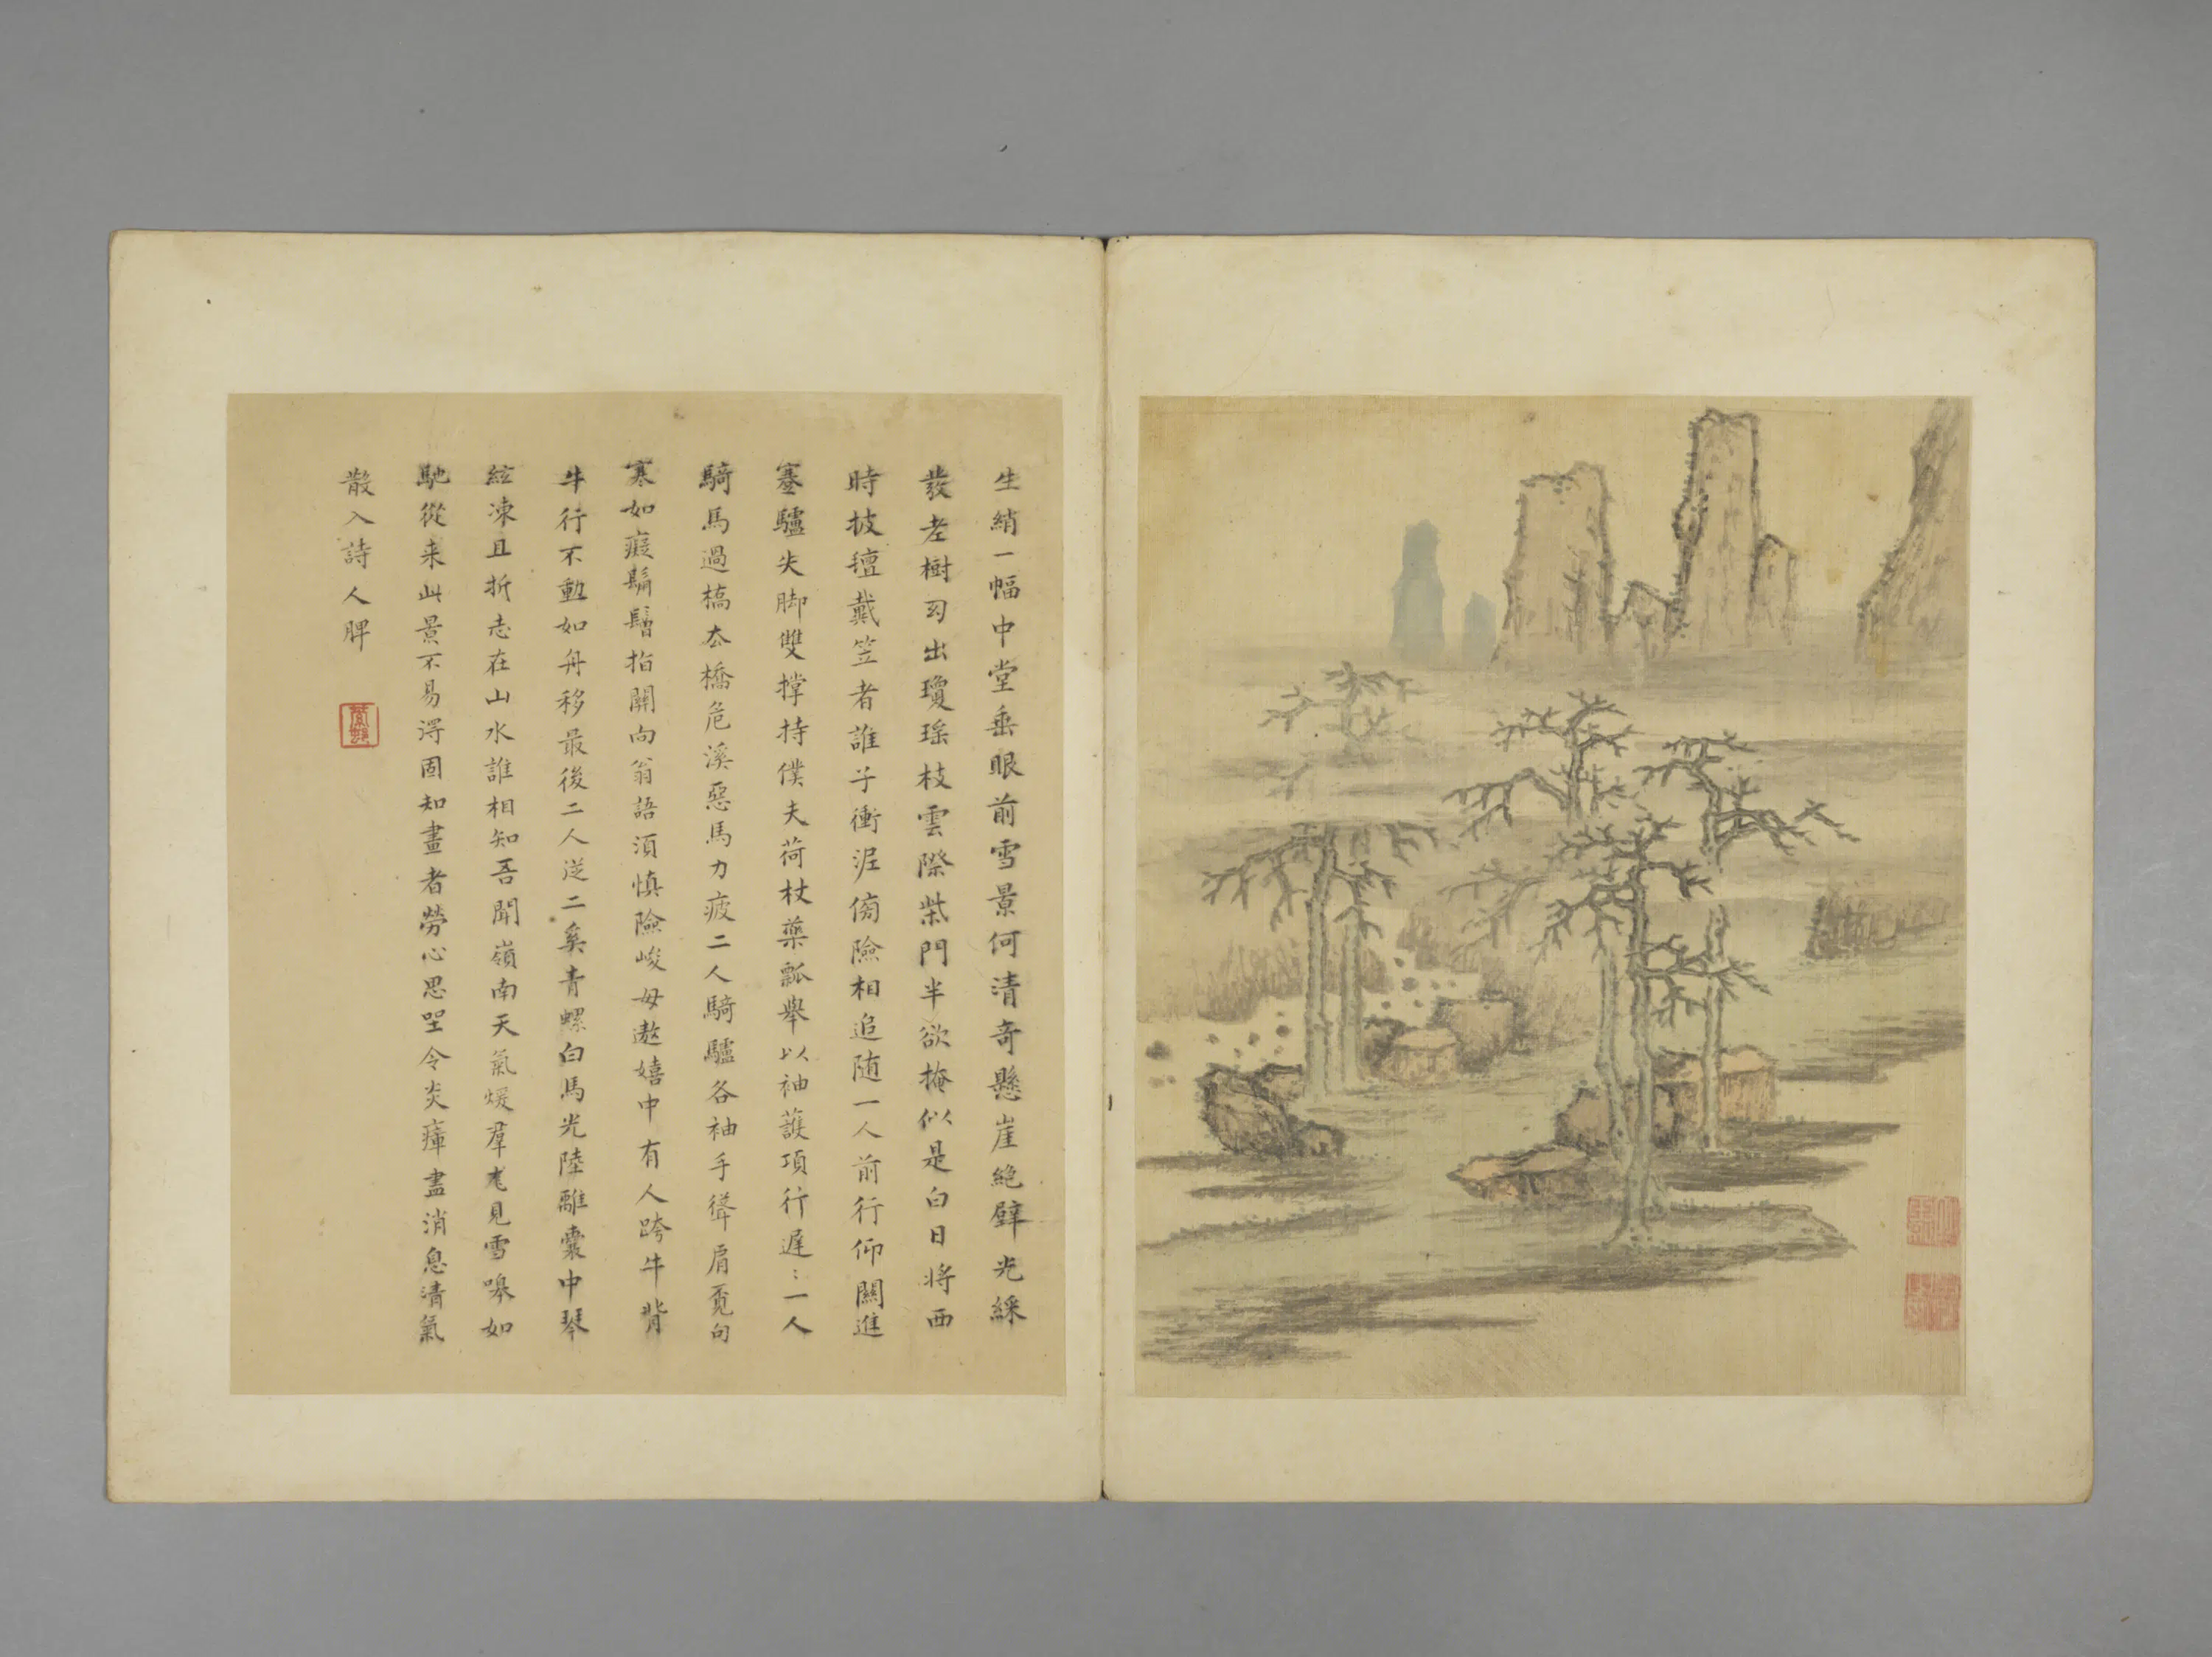 生綃一幅中堂垂眼前雪景何清奇懸崖絶壁光綵
發老樹幻出瓊瑶枝雲際柴門半欲掩似是白日将西
時披氊戴笠者誰子衝泥傍險相追随一人前行仰關進
蹇驢失脚雙撑持僕夫荷杖藥瓢舉以袖護項行遲〻一人
騎馬過橋橋危溪惡馬力疲二人騎驢各袖手聳肩覓句
寒如癡髯指關向翁語湏慎險峻毋遨嬉中有人跨牛背
牛行不動如舟移最後二人從二奚青螺白馬光陸離囊中琴
絃凍且折志在山水誰相知吾聞嶺南天氣煖羣尨見雪嘷如
馳從来此景不易得固知畫者勞心思坐令炎瘴盡消息清氣
散入詩人脾